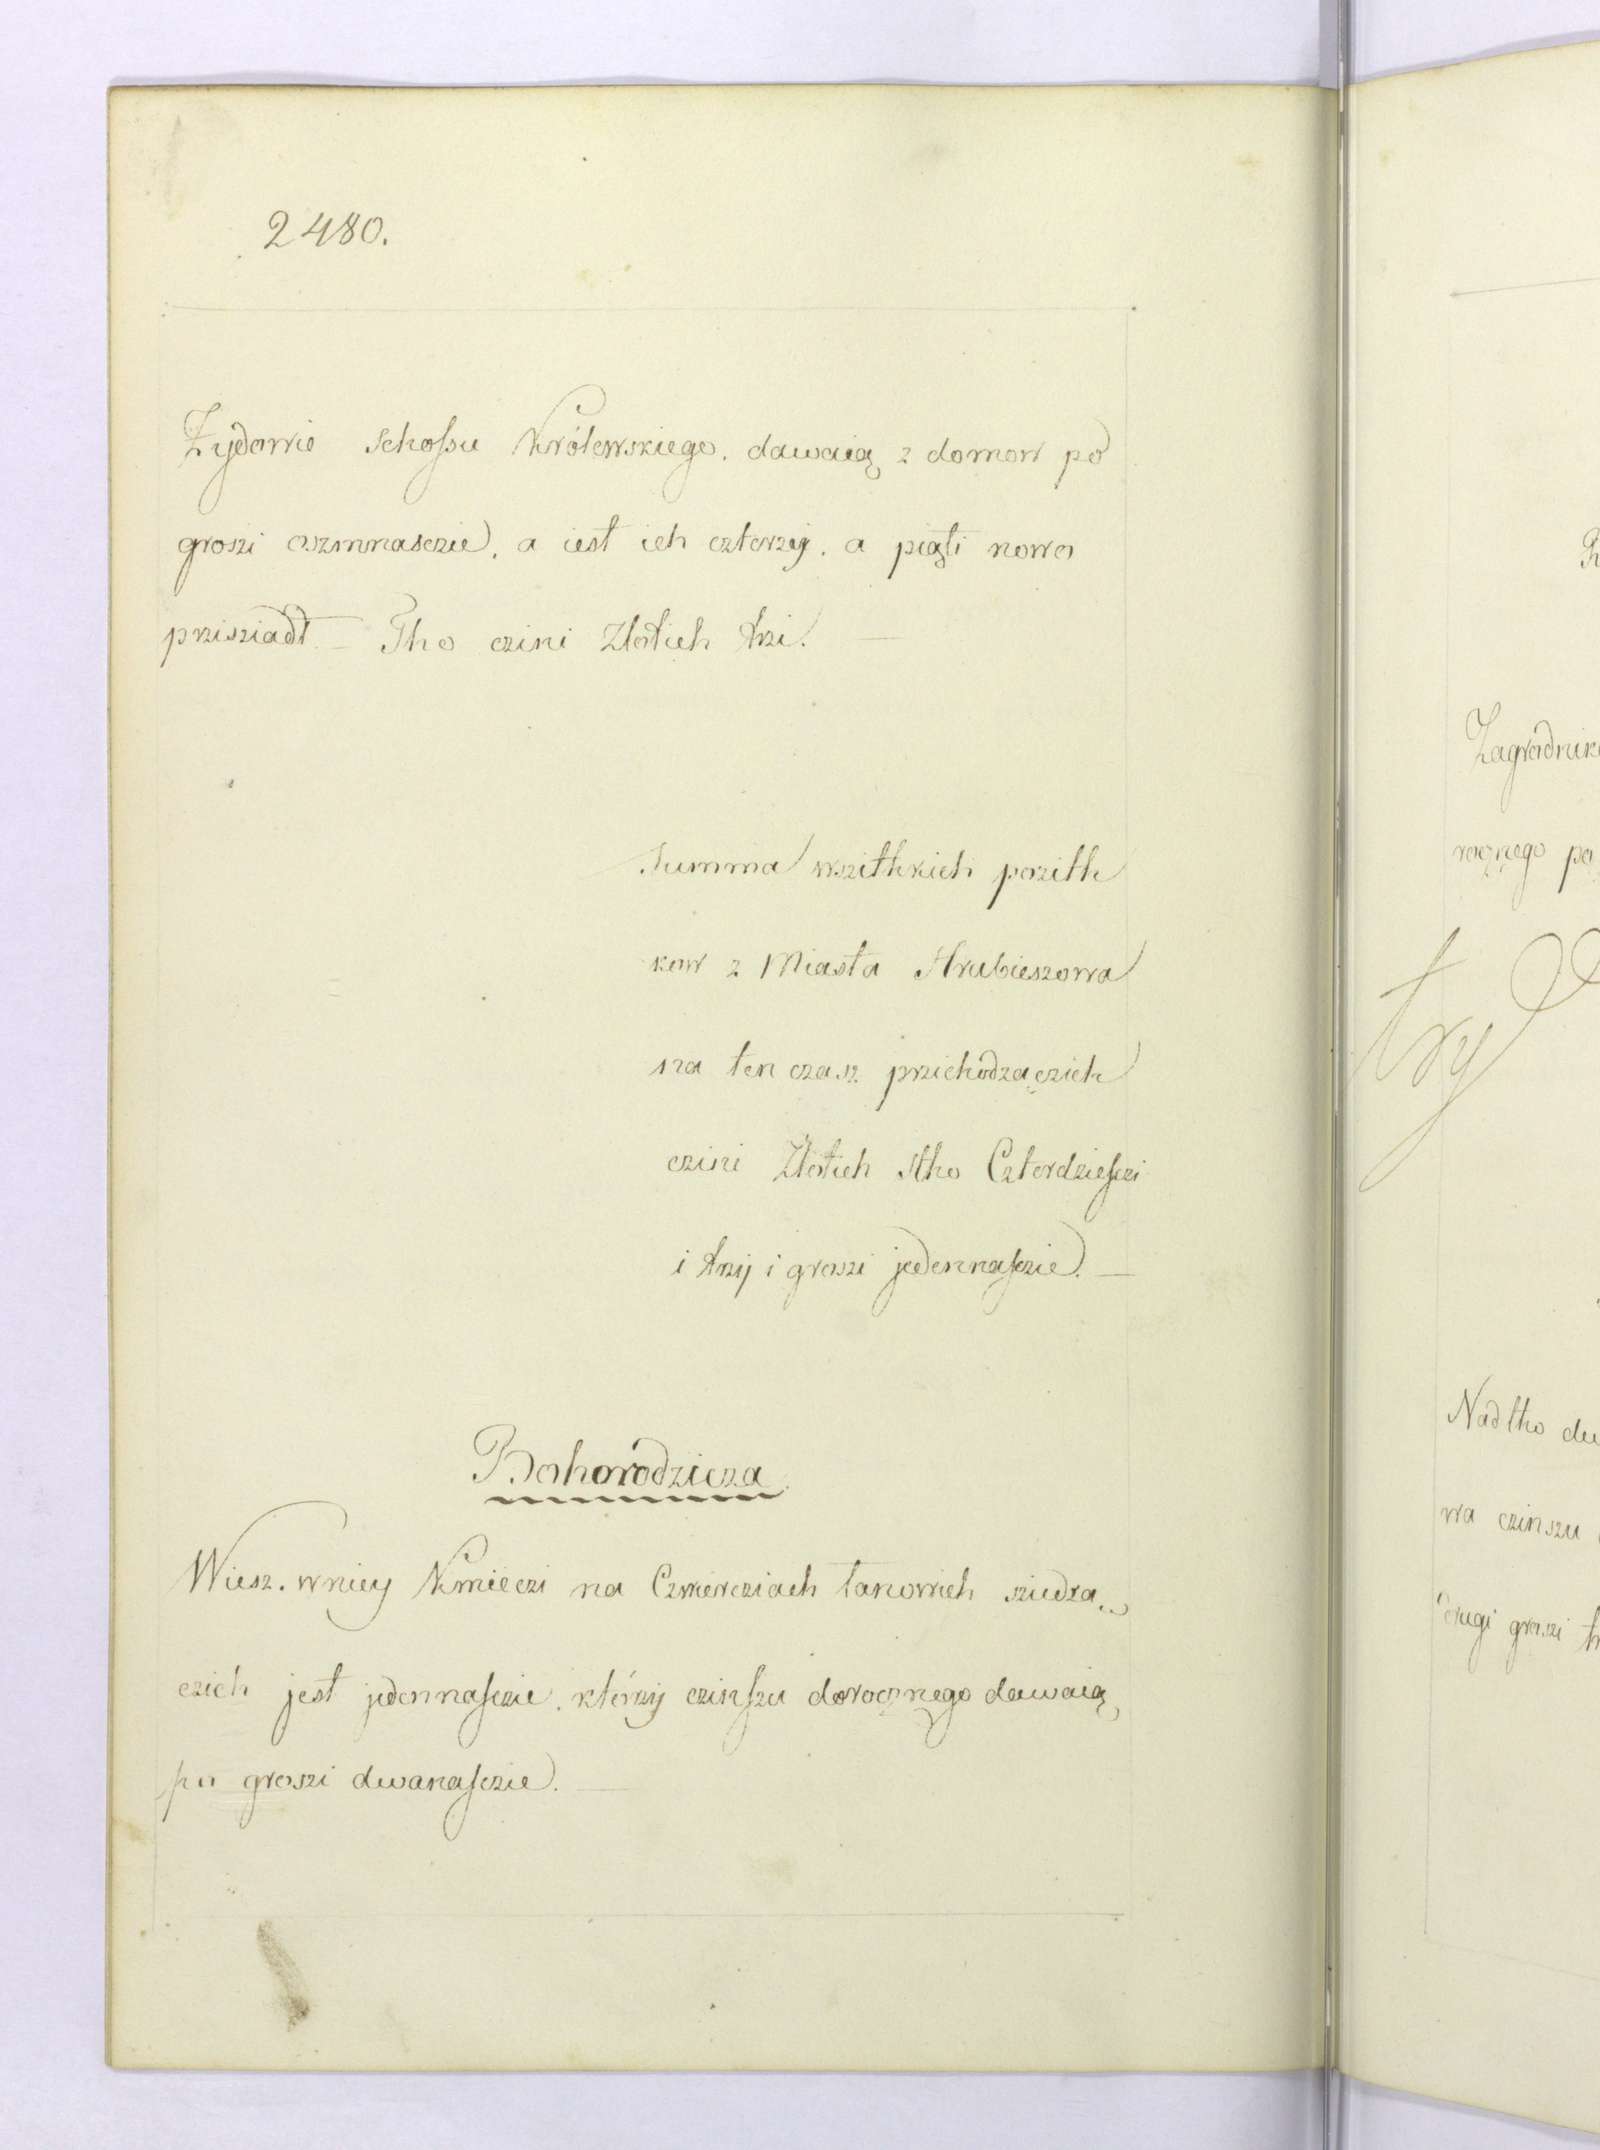 2480.
Żydowie schoſsu Królewskiego. dawaią z domow po
groszi oszmnasczie, a iest ich czterzej. a piąti nowo
przisziadł — Tho czini Złotich trzi. —
Summa wszitkich pozitk
kow z Miasta Hrubieszowa
na ten czasz przichodzączich
czini Złotich stho Czterdzieſczi
i trzij i groszi jedennaſczie. —
Bohorodzicza
Wiesz. wniey Kmieczi na Czwierciach łanowich sziedzą„
czich jest jedennaſczie, którzij czinſzu dorocznego dawaią
po groszi dwanaſczie. —
Zagrodnik
rocznego po
try
Nadtho du
wa czinszu
drugi groszi